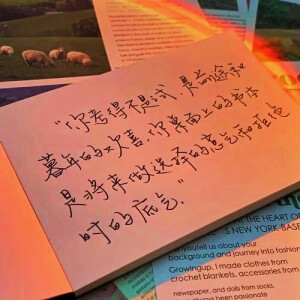 "你考得不是试,是前途和
暮年的欢喜,你桌面上的书本
是将来做选择的勇气和拒绝
时的底气."
THE HEART OF
NEW YORK-BASE
tell us about your
background and journey into fashion
Growing up, I made clothes from
crochet blankets, accessories from
newspaper, and dolls from socks.
been passionate